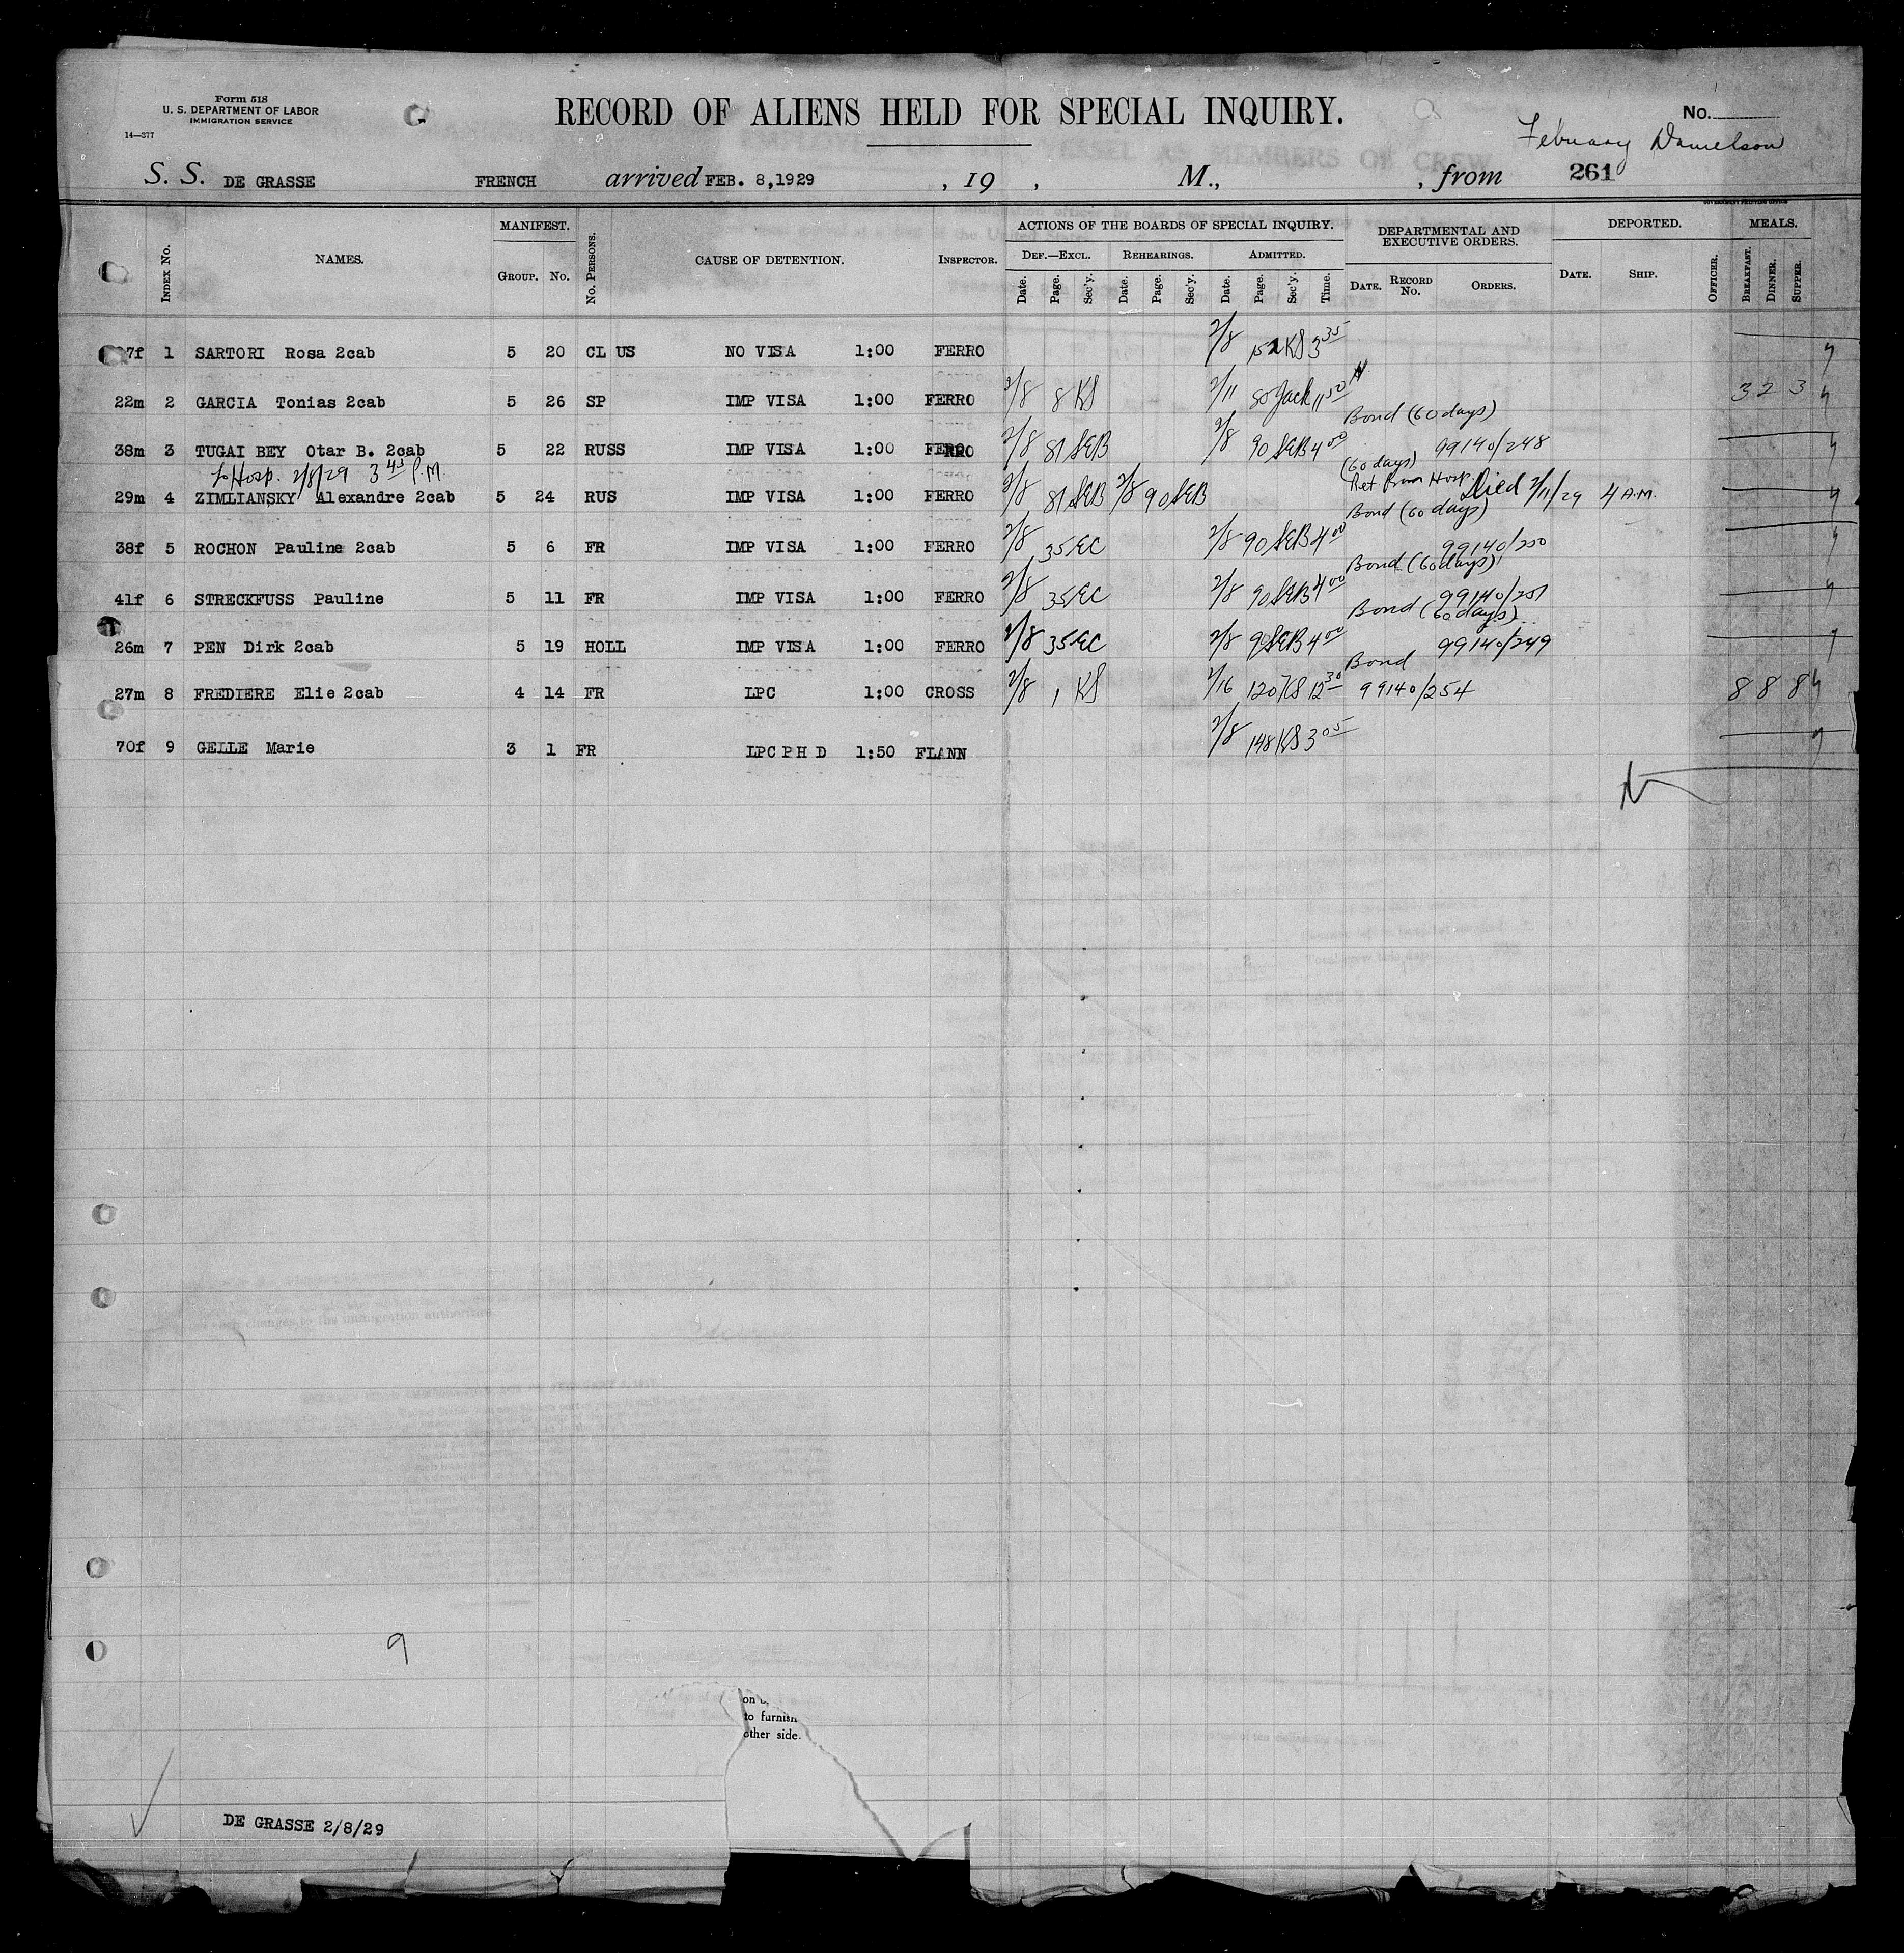 Form 518
U. S. DEPARTMENT OF LABOR
IMMIGRATION SERVICE
14—377
RECORD OF ALIENS HELD FOR SPECIAL INQUIRY.
No.
February Danielson
S. S. DE GRASSE FRENCH arrived FEB. 8,1929 , 19 , M., , from 261
GOVERNMENT PRINTING OFFICE
INDEX No. NAMES. MANIFEST. GROUP. NO. No. PERSONS. CAUSE OF DETENTION. INSPECTOR. ACTIONS OF THE BOARDS OF SPECIAL INQUIRY. DEPARTMENTAL AND EXECUTIVE ORDERS. DEPORTED. MEALS.
DEF.—EXCL. REHEARINGS. ADMITTED.
Date. Page. Sec'y. Date. Page. Sec'y. Date. Page. Sec'y. Time. DATE. RECORD No. ORDERS. DATE. SHIP. OFFICER. BREAKFAST. DINNER. SUPPER.
7f 1 SARTORI Rosa 2cab 5 20 CL US NO VISA 1:00 FERRO 2/8 152 KS 3 35
22m 2 GARCIA Tonias 2cab 5 26 SP IMP VISA 1:00 FERRO 2/8 8 KS 2/11 80 Jack 11 50 3 2 3
Bond (60 days)
38m 3 TUGAI BEY Otar B. 2cab 5 22 RUSS IMP VISA 1:00 FERRO 2/8 81 SEB 2/8 90 SEB 4 00 99140/248
to Hosp. 2/8/29 3 45 P.M. (60 days)
Ret from Hosp.
29m 4 ZIMLIANSKY Alexandre 2cab 5 24 RUS IMP VISA 1:00 FERRO 2/8 81 SEB 2/8 90 SEB Died 2/11/29 4 A.M.
Bond (60 days)
38f 5 ROCHON Pauline 2cab 5 6 FR IMP VISA 1:00 FERRO 2/8 35 EC 2/8 90 SEB 4 00 99140/250
Bond (60 days)
41f 6 STRECKFUSS Pauline 5 11 FR IMP VISA 1:00 FERRO 2/8 35 EC 2/8 90 SEB 4 00 99140/251
Bond (60 days)
26m 7 PEN Dirk 2cab 5 19 HOLL IMP VISA 1:00 FERRO 2/8 35 EC 2/8 90 SEB 4 00 99140/249
Bond
27m 8 FREDIERE Elie 2cab 4 14 FR LPC 1:00 CROSS 2/8 1 KS 2/16 120 KS 12 30 99140/254 8 8 8
70f 9 GELLE Marie 3 1 FR LPC P H D 1:50 FLANN 2/8 148 KS 3 05
9
to furnish
other side.
DE GRASSE 2/8/29